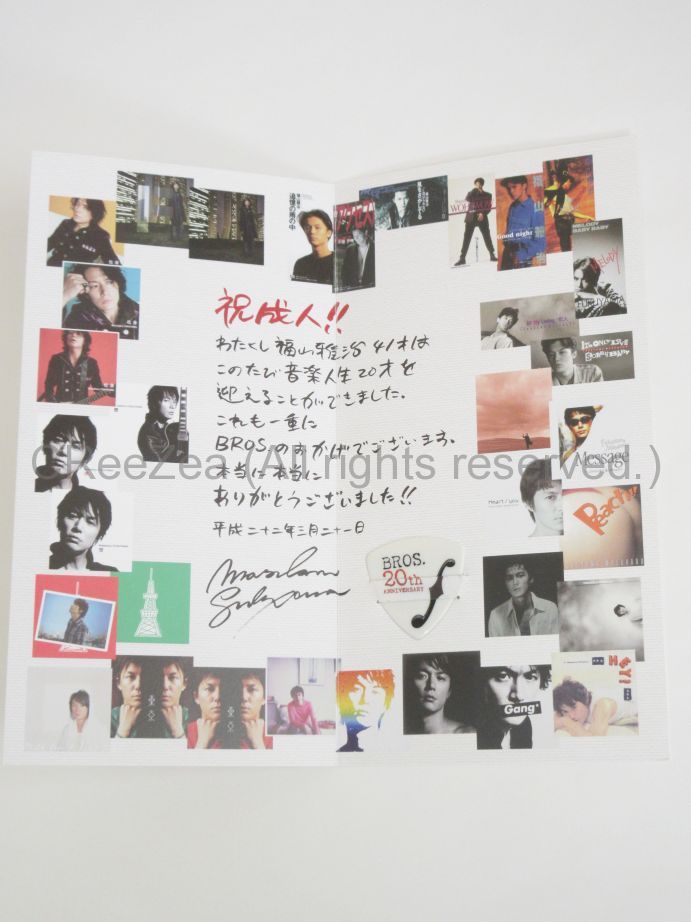 追憶の雨の中
WOH WOW
Good night
MELODY
BABY BABY
MELODY
IT'S ONLY LOVE
SORRY BABY
祝成人!!
わたくし福山雅治41才は
このたび音楽人生20才を
迎えることができました。
これも一重に
BROS.のおかげでございます。
本当に本当に
ありがとうございました!!
平成二十二年三月二十一日
©ReeZea (All rights reserved.)
Message
Heart / 
Peach!!
BROS.
20th
ANNIVERSARY
Gang★
HEY!